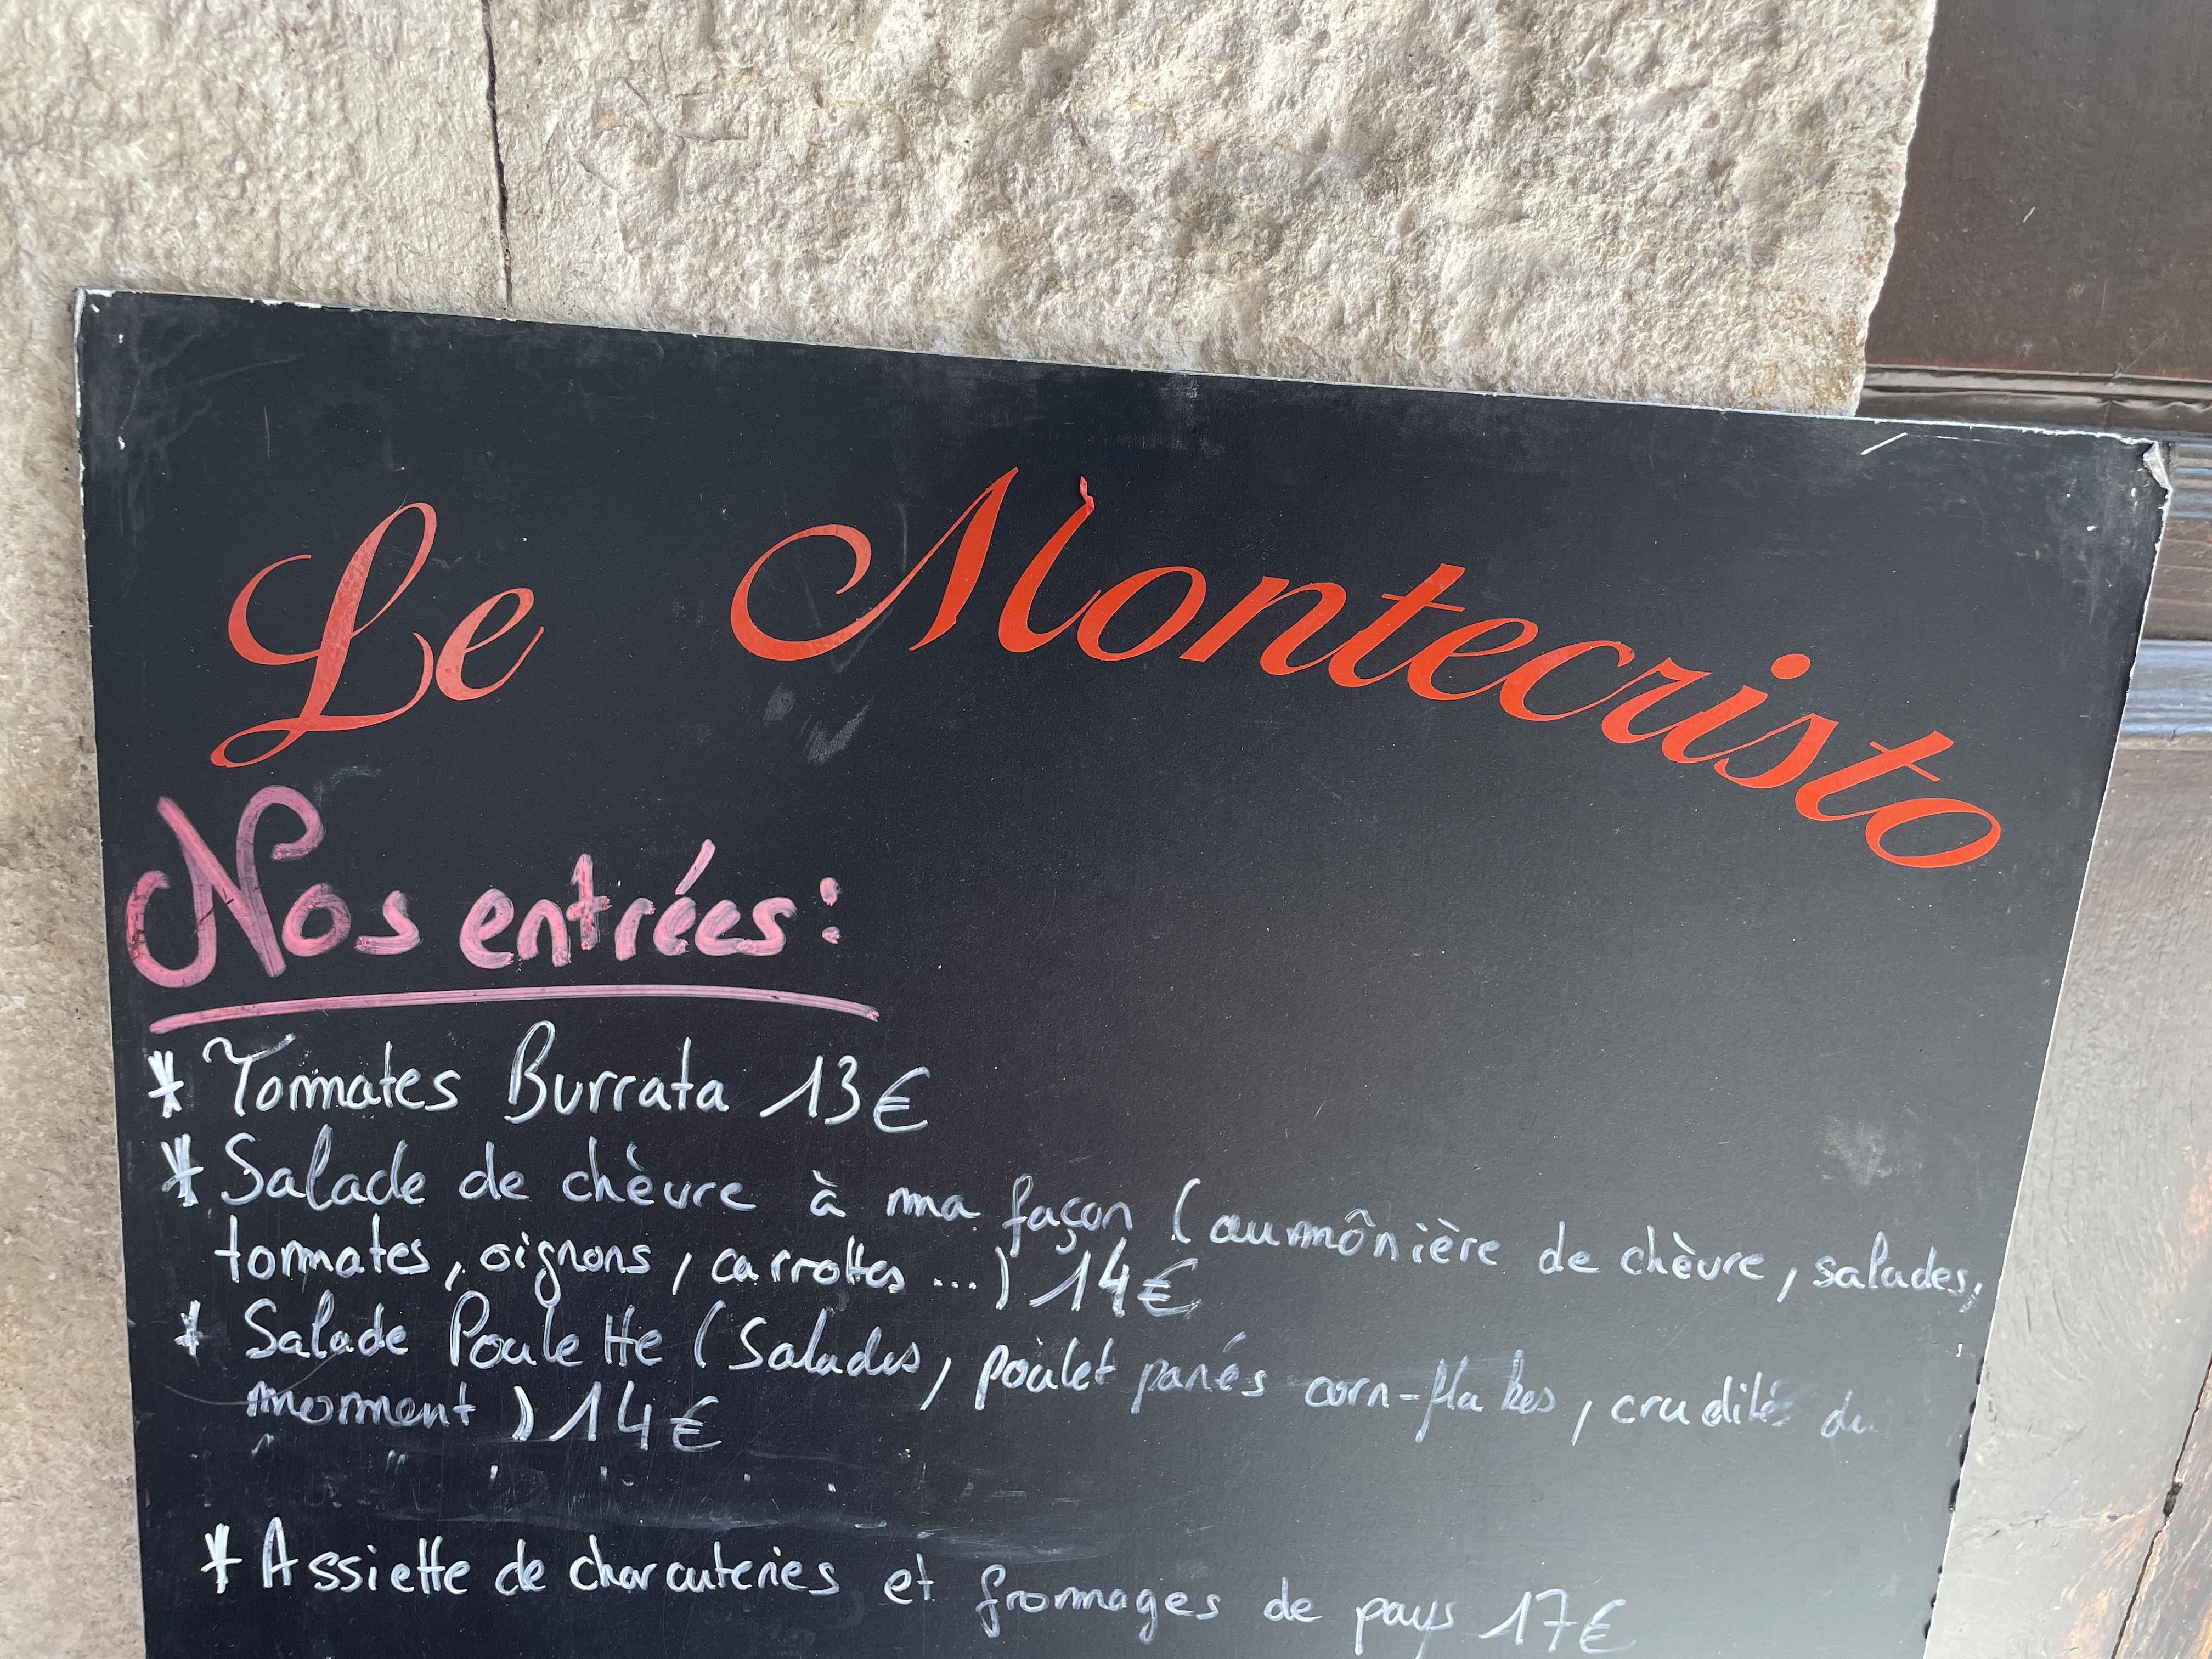 Le Montecristo
Nos entrées:
* Tomates Burrata 13€
* Salade de chèvre à ma façon (aumônière de chèvre, salades,
tomates, oignons, carrottes ...) 14€
* Salade Poulette (Salades, poulet panés corn-flakes, crudités du
moment) 14€
* Assiette de charcuteries et fromages de pays 17€